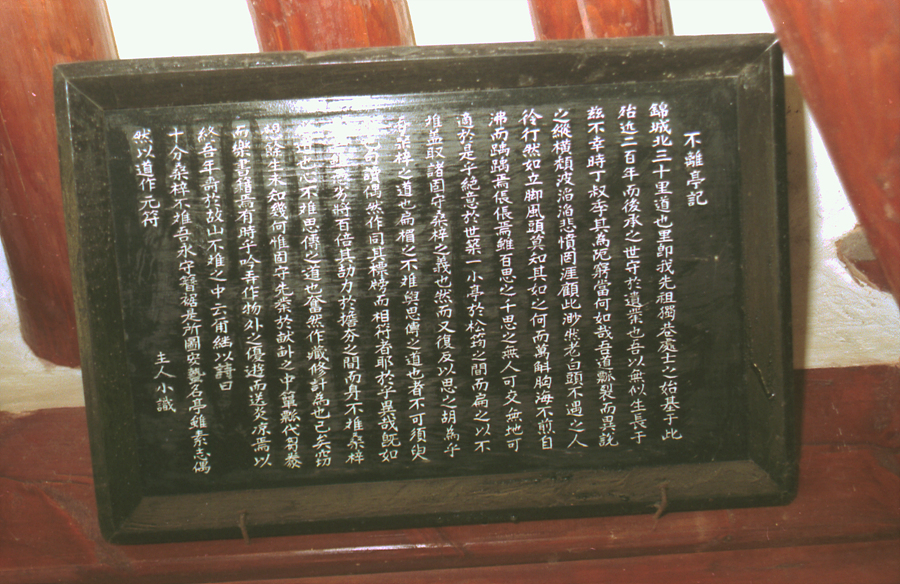 不離亭記
錦城北三十里道也里卽我先祖獨巷處士之始基于此
殆近二百年而後承之世守於遺業也吾以無似生長于
玆不幸時丁叔季其爲窮當何如哉吾道瓢裂而異說
之縱橫頹波滔滔悲憤罔涯顧此渺然老白頭不遇之人
伶仃然如立脚風頭莫知其如之何而萬斛胸海不煎自
沸而踽踽焉倀倀焉雖百思之千思之無人可交無地可
適於是乎絶意於世築一小亭於松筠之間而扁之以不
離盖取諸固守桑梓之義也然而又復反以思之胡爲乎
桑梓之道也扁楣之不離與思傳之道也者不可須臾
句讀偶然作同其標榜而相符者耶於乎異哉旣如
少將百倍其劼力於擔分之間而身不離桑梓
心不離思傳之道也奮然作藏修計爲也已矣窃
餘生未知幾何惟固守先業於畎畝之中簞瓢代
而樂書籍焉有時乎吟弄作物外之優遊而送炎凉焉以
終吾年壽於故山不離之中云爾繼以詩曰
十分桑梓不離吾永守箕裘是所圖安藝名亭雖素志偶
然以道作元符
主人小識